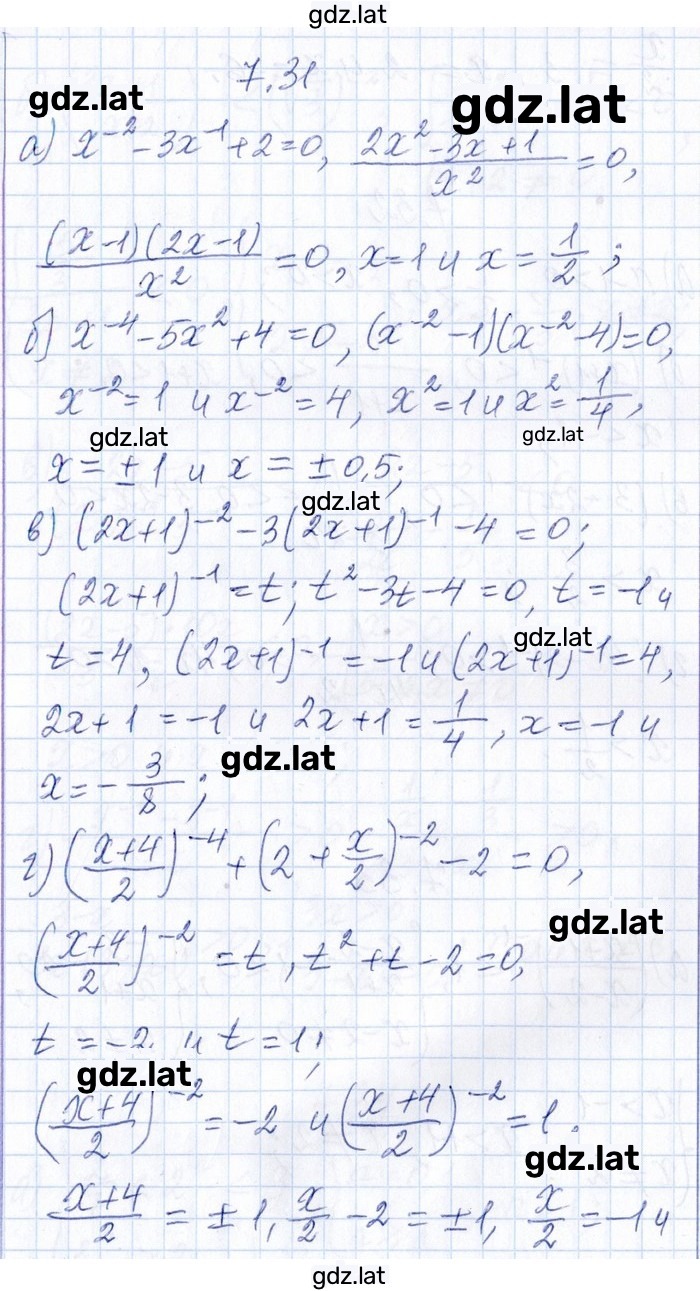 gdz.lat
7.31
gdz.lat
gdz.lat
а) x⁻² - 3x⁻¹ + 2 = 0, (2x² - 3x + 1)/x² = 0,
((x-1)(2x-1))/x² = 0, x = 1 и x = 1/2 ;
б) x⁻⁴ - 5x² + 4 = 0, (x⁻² - 1)(x⁻² - 4) = 0,
x⁻² = 1 и x⁻² = 4, x² = 1 и x² = 1/4,
gdz.lat
gdz.lat
x = ± 1 и x = ± 0,5;
gdz.lat
в) (2x+1)⁻² - 3(2x+1)⁻¹ - 4 = 0;
(2x+1)⁻¹ = t; t² - 3t - 4 = 0, t = -1 и
gdz.lat
t = 4, (2x+1)⁻¹ = -1 и (2x+1)⁻¹ = 4,
2x + 1 = -1 и 2x + 1 = 1/4, x = -1 и
gdz.lat
x = - 3/8 ;
г) ((x+4)/2)⁻⁴ + (2 + x/2)⁻² - 2 = 0,
gdz.lat
((x+4)/2)⁻² = t, t² + t - 2 = 0,
t = -2 и t = 1;
gdz.lat
((x+4)/2)⁻² = -2 и ((x+4)/2)⁻² = 1.
gdz.lat
(x+4)/2 = ± 1, x/2 - 2 = ± 1, x/2 = -1 и
gdz.lat